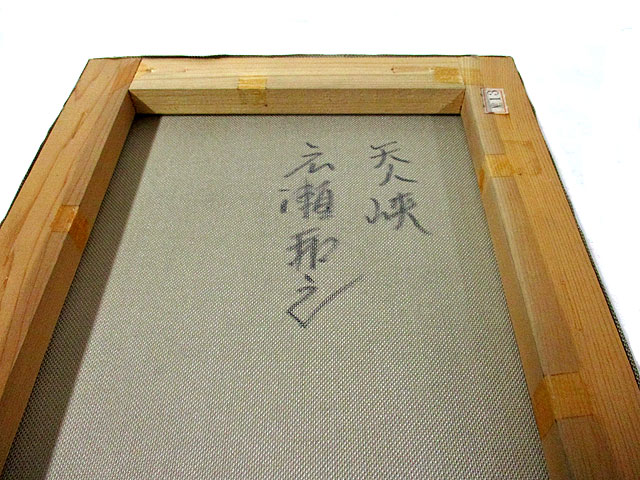 天人峡
広瀬邦之
F13